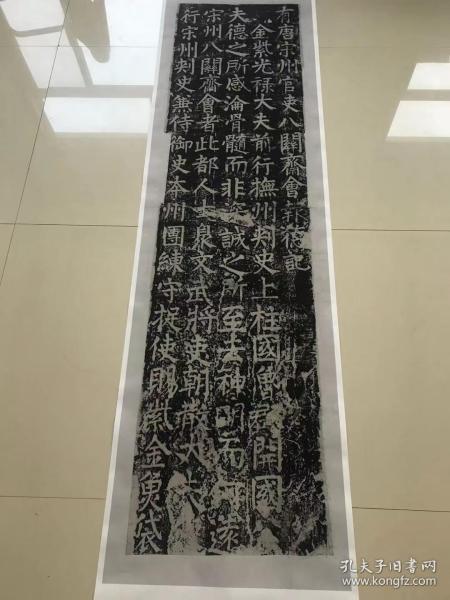 有唐宋州官吏八關齋會報德記
金紫光祿大夫前行撫州刾史上柱國魯郡開國
夫德之所感淪骨髓而非 誠之所至去神明而 遠
宋州八關齋會者此都人士衆文武將吏朝散大夫
行宋州刾史兼侍御史本州團練守捉使賜紫金魚袋
孔夫子旧书网
www.kongfz.com